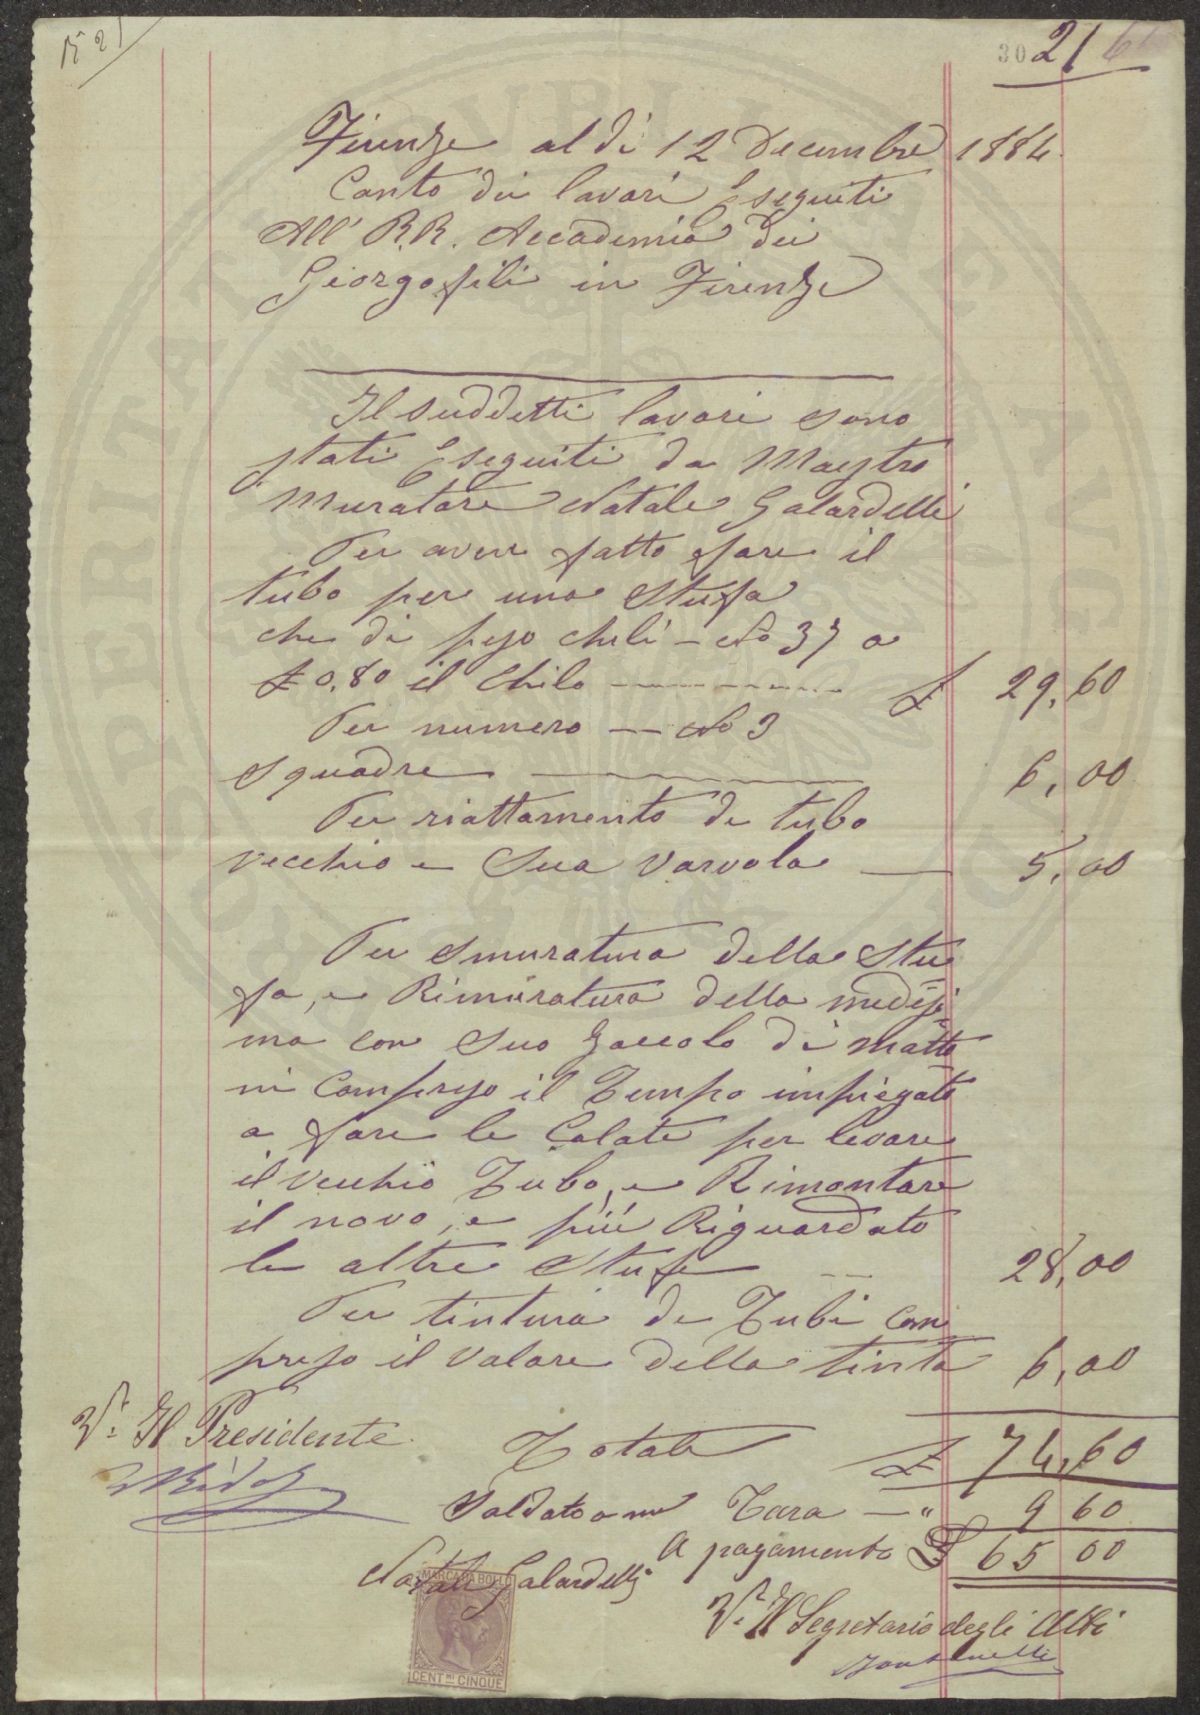 30 21
Firenze al di 12 Decembre 1884
Conto dei lavori Eseguiti
All' R.R. Accademia dei
Georgofili in Firenze
Il suddetti lavori sono
stati Eseguiti da Maestro
Muratore Natale Galardelli
Per aver fatto fare il
tubo per una Stufa
che di peso chili - No 37 a
£ 0,80 il Chilo £ 29,60
Per numero -- No 3
squadre 6,00
Per riattamento di tubo
vecchio e Sua Varvola 5,00
Per Smuratura della Stu
fa, e Rimuratura della medesi
ma con suo Zoccolo di Matto
ni Compreso il Tempo impiegato
a fare le Calate per levare
il vecchio Tubo, e Rimontare
il novo, e più Riguardato
le altre Stufe 28,00
Per tintura di Tubi Com
preso il valore della tinta 6,00
V.° Il Presidente
Totale £ 74,60
Saldato a me Tara — " 9 60
A pagamento £ 65 00
Natale Galardelli
MARCA DA BOLLO
CENT.MI CINQUE
V.° Il Segretario degli Atti